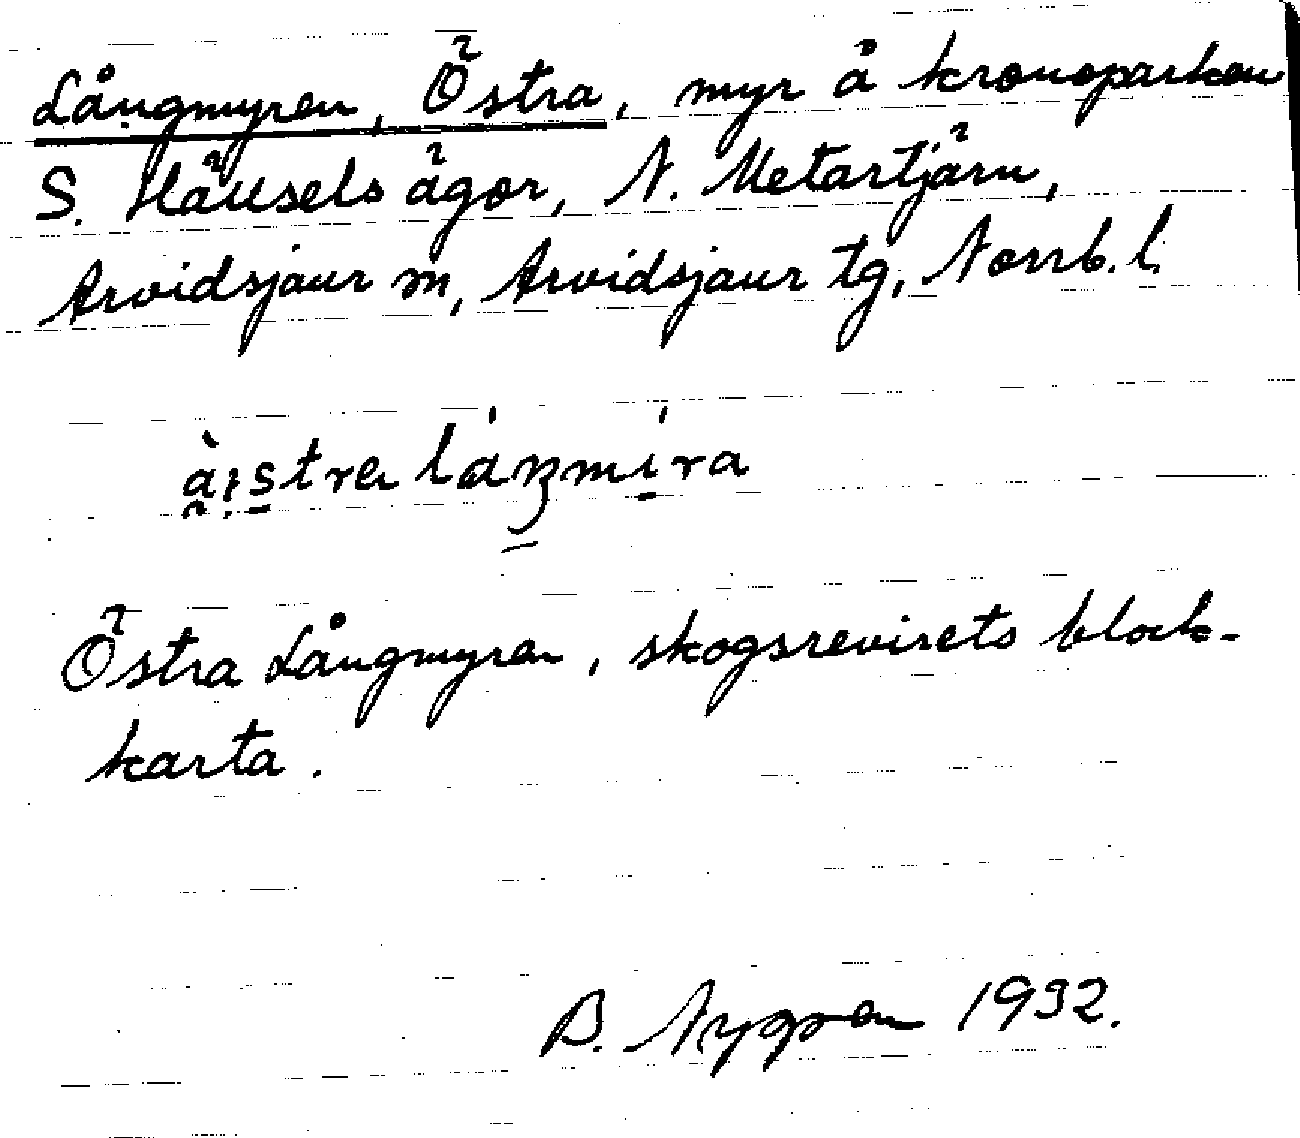 Långmyren, Östra, myr å kronoparken
S. Hällsels ägor, N. Metartjärn,
Arvidsjaur sn, Arvidsjaur tg, Norrb. l.
Östra Långmyren, skogsrevirets block-
karta.
B. Nygren 1932.